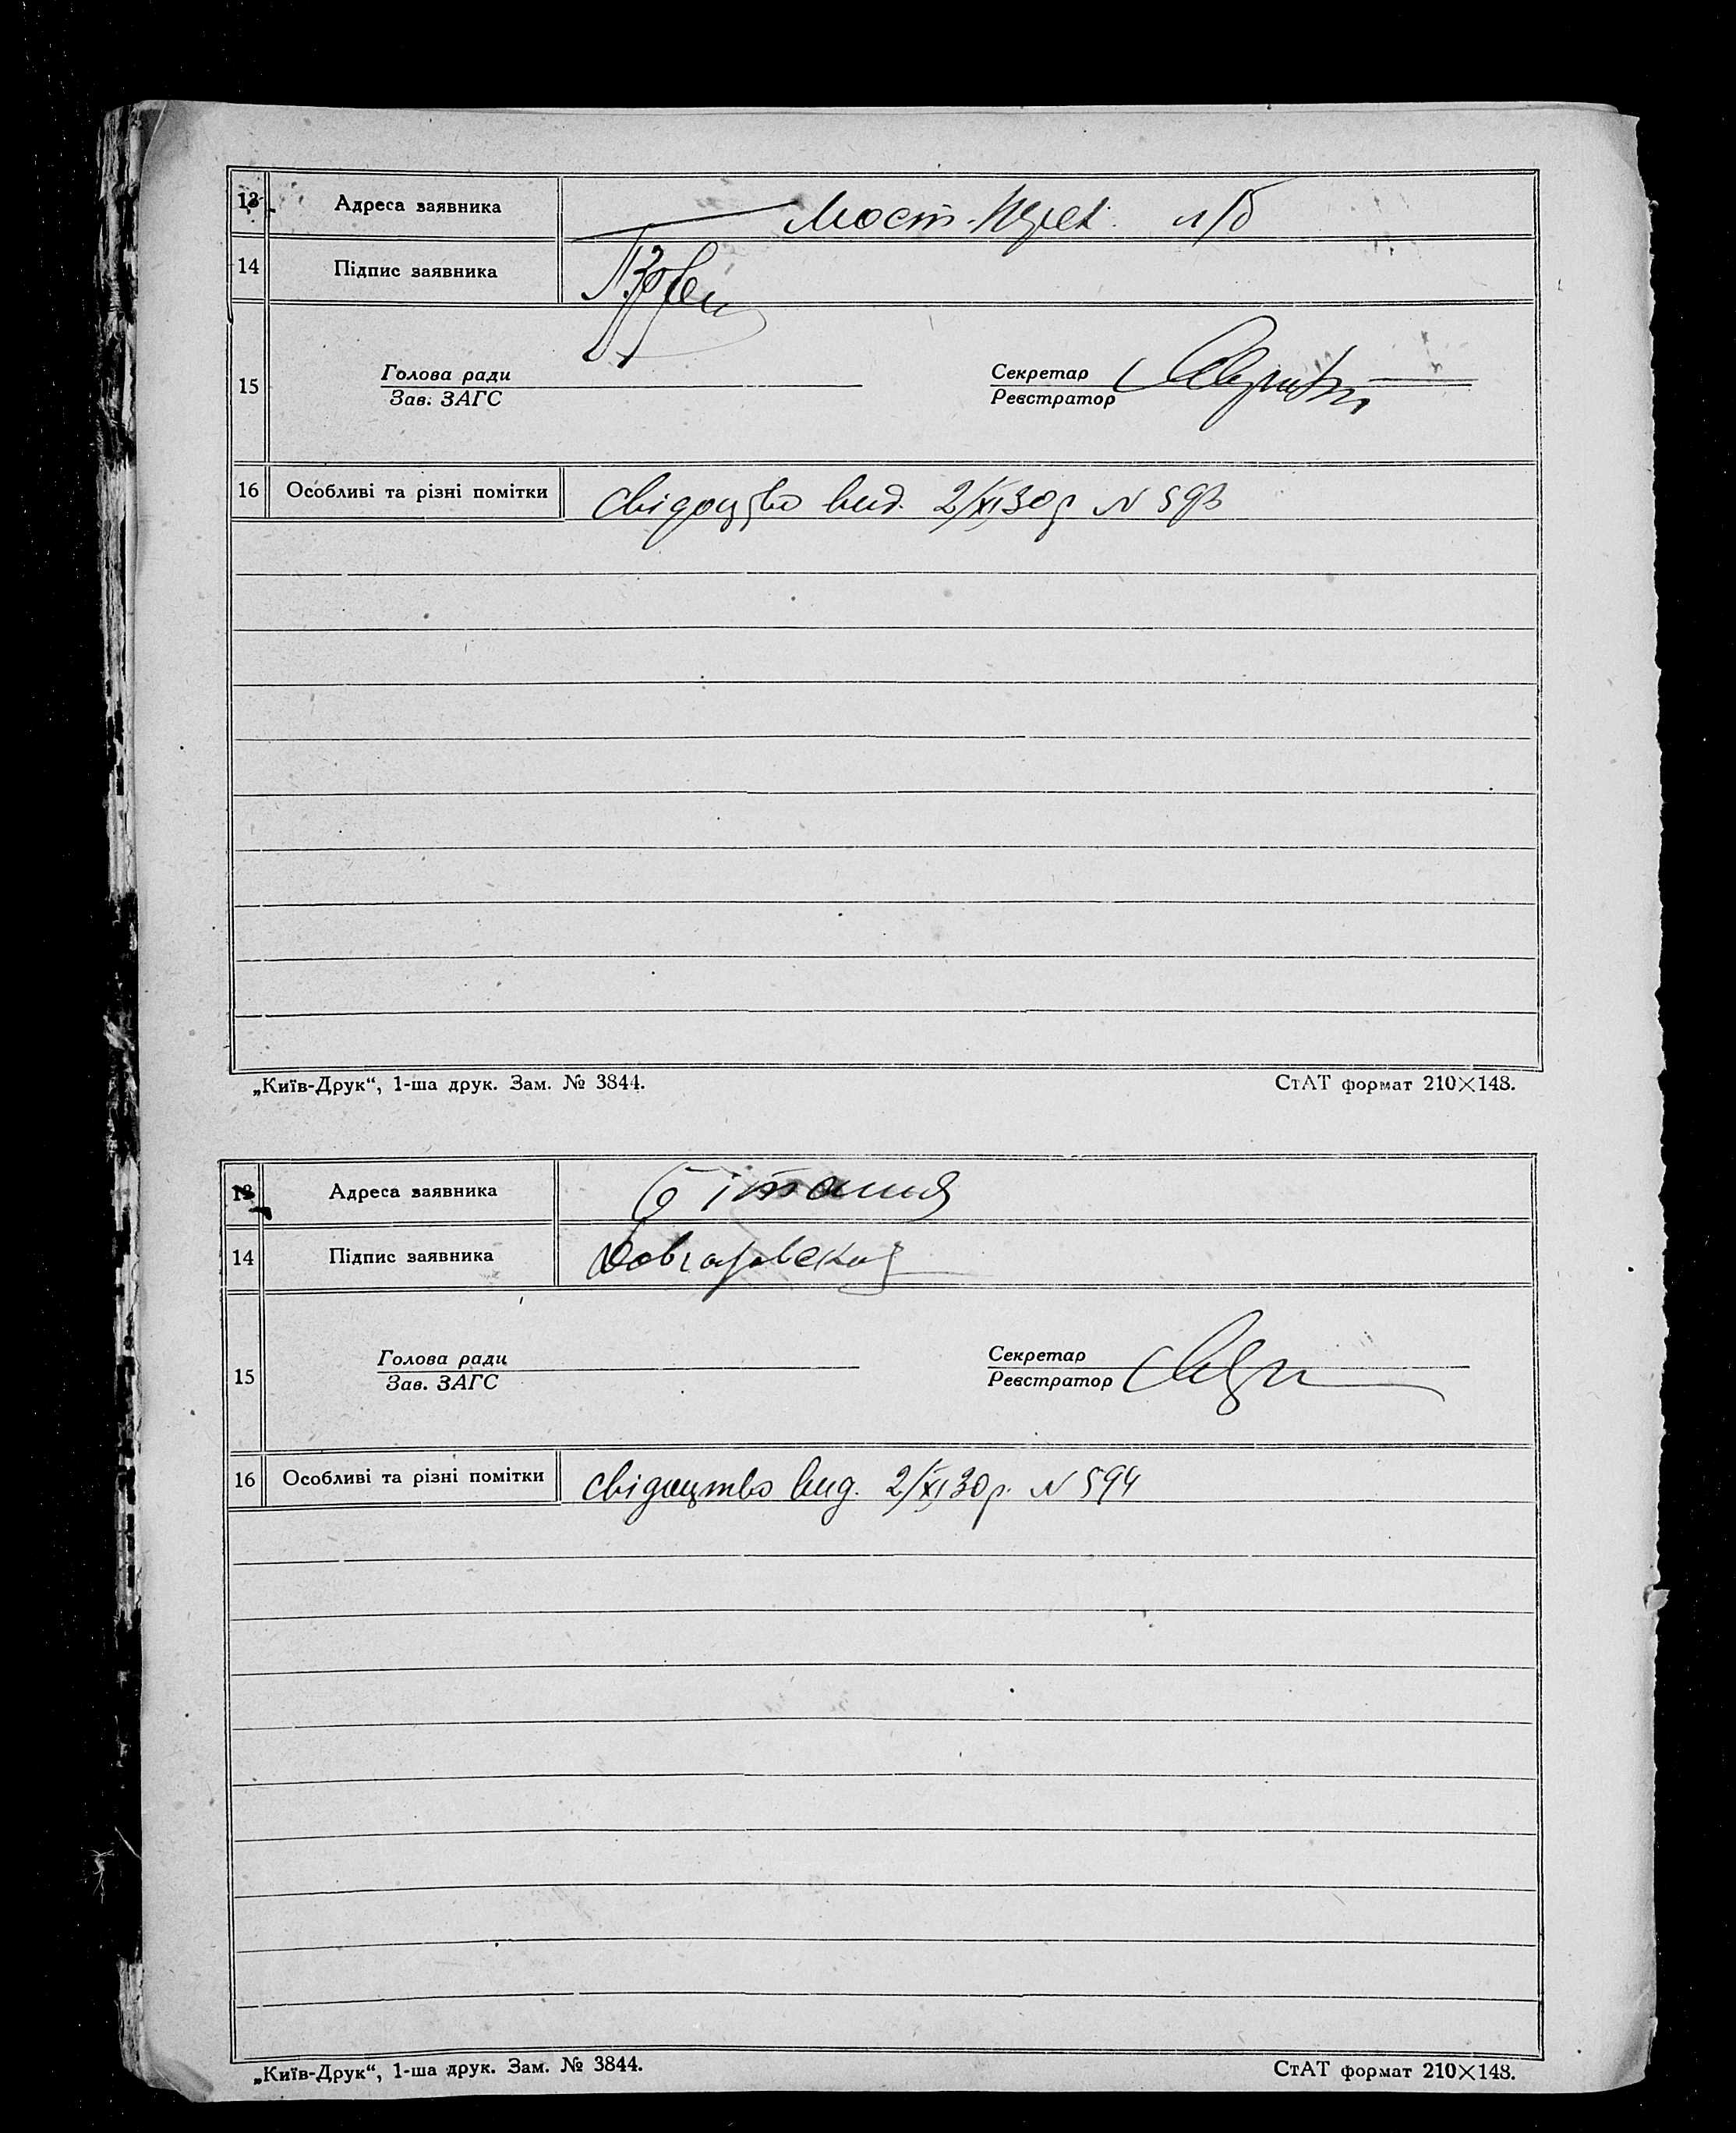 13 Адреса заявника Мост. п/б
14 Підпис заявника
Голова ради Секретар
15
Зав. ЗАГС Реєстратор
16 Особливі та різні помітки свідоцтво вид. 2/XI 30 р N 593
„Київ-Друк“, 1-ша друк. Зам. № 3844. СтАТ формат 210×148.
13 Адреса заявника
14 Підпис заявника
Голова ради Секретар
15
Зав. ЗАГС Реєстратор
16 Особливі та різні помітки свідоцтво вид. 2/XI 30 р. N 594
„Київ-Друк“, 1-ша друк. Зам. № 3844. СтАТ формат 210×148.